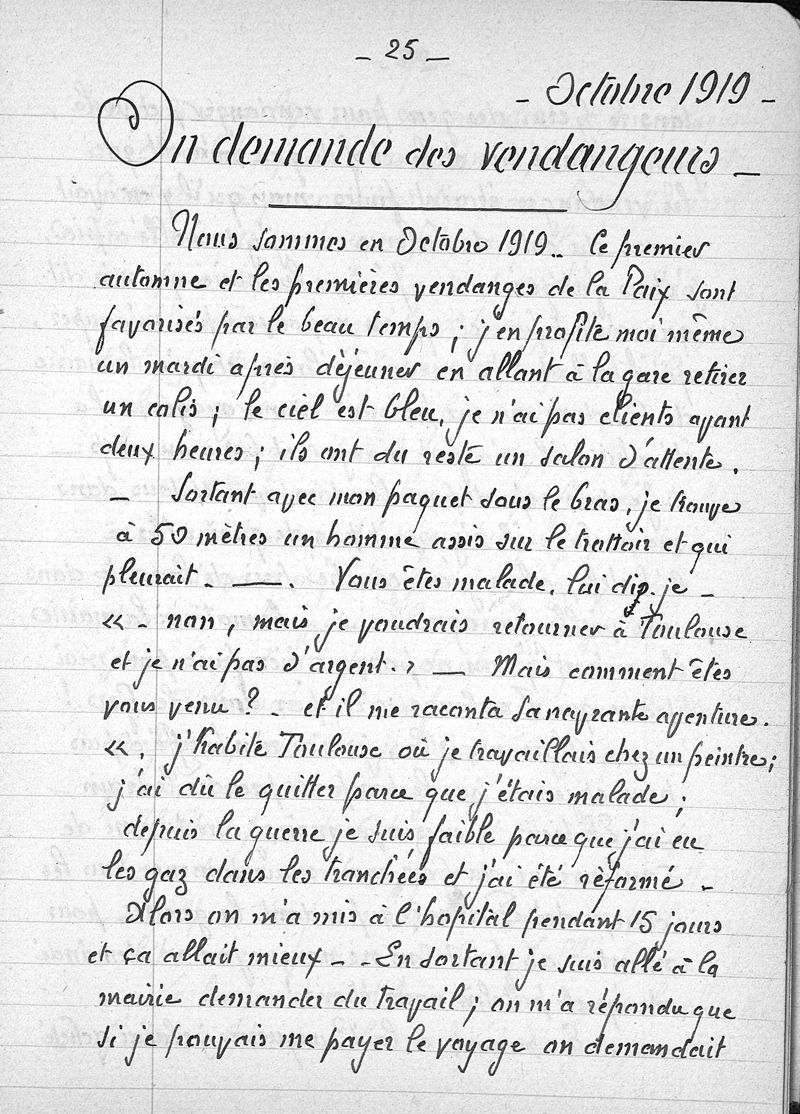 - 25 -
- Octobre 1919 -
On demande des vendangeurs -
Nous sommes en Octobre 1919.. Ce premier
automne et les premières vendanges de la Paix sont
favorisés par le beau temps ; j'en profite moi même
un mardi après déjeuner en allant à la gare retirer
un colis ; le ciel est bleu, je n'ai pas clients avant
deux heures ; ils ont du reste un salon d'attente.
- Sortant avec mon paquet sous le bras, je trouve
à 50 mètres un homme assis sur le trottoir et qui
pleurait. -. Vous êtes malade, lui dis-je -
« - non, mais je voudrais retourner à Toulouse
et je n'ai pas d'argent. » — Mais comment êtes
vous venu ? - et il me raconta sa navrante aventure.
« . j'habite Toulouse où je travaillais chez un peintre ;
j'ai dû le quitter parce que j'étais malade ;
depuis la guerre je suis faible parce que j'ai eu
les gaz dans les tranchées et j'ai été réformé -
Alors on m'a mis à l'hopital pendant 15 jours
et ça allait mieux - . En sortant je suis allé à la
mairie demander du travail ; on m'a répondu que
si je pouvais me payer le voyage on demandait